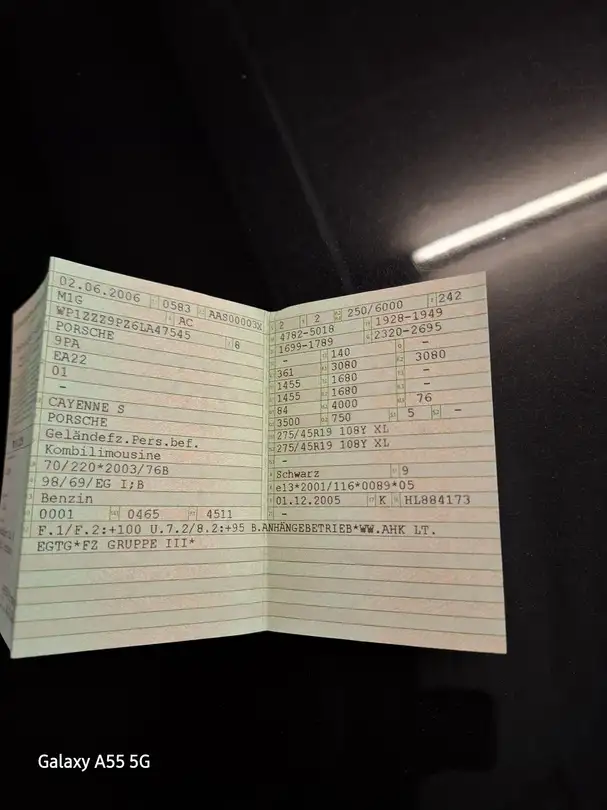 02.06.2006 0583 AAS00003X
M1G AC
WP1ZZZ9PZ6LA47545 8
PORSCHE
9PA
EA22
01
-
CAYENNE S
PORSCHE
Geländefz.Pers.bef.
Kombilimousine
70/220*2003/76B
98/69/EG I;B
Benzin
0001 0465 4511
2 2 250/6000 242
4782-5018 1928-1949
1699-1789 2320-2695
- 140 -
361 3080 3080
1455 1680 -
1455 1680 -
84 4000 76
3500 750 5 -
275/45R19 108Y XL
275/45R19 108Y XL
-
Schwarz 9
e13*2001/116*0089*05
01.12.2005 K HL884173
-
F.1/F.2:+100 U.7.2/8.2:+95 B.ANHÄNGEBETRIEB*WW.AHK LT.
EGTG*FZ GRUPPE III*
Galaxy A55 5G